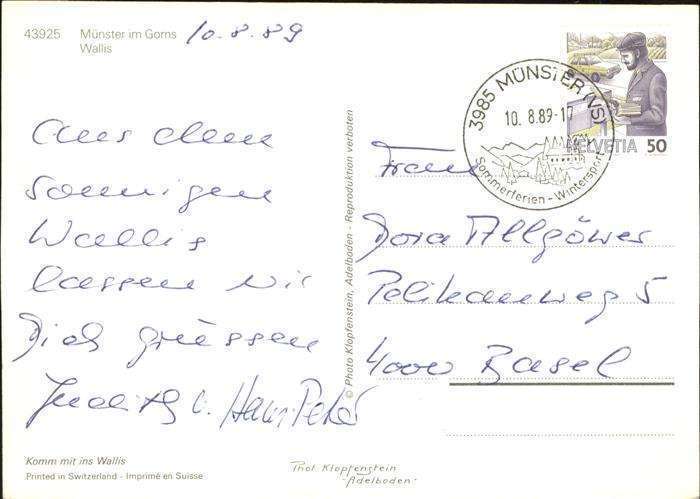 43925 Münster im Goms 10.8.89
Wallis
Aus dem
sonnigen
Wallis
lassen wir
Dich grüssen
Judith u. Hans-Peter
© Photo Klopfenstein, Adelboden - Reproduktion verboten
3985 MÜNSTER (VS)
10.8.89-17
Sommerferien - Wintersport
HELVETIA 50
Frau
Dora Allgöwer
Pelikanweg 5
4000 Basel
Komm mit ins Wallis
Printed in Switzerland - Imprimé en Suisse
Phot. Klopfenstein
-Adelboden-